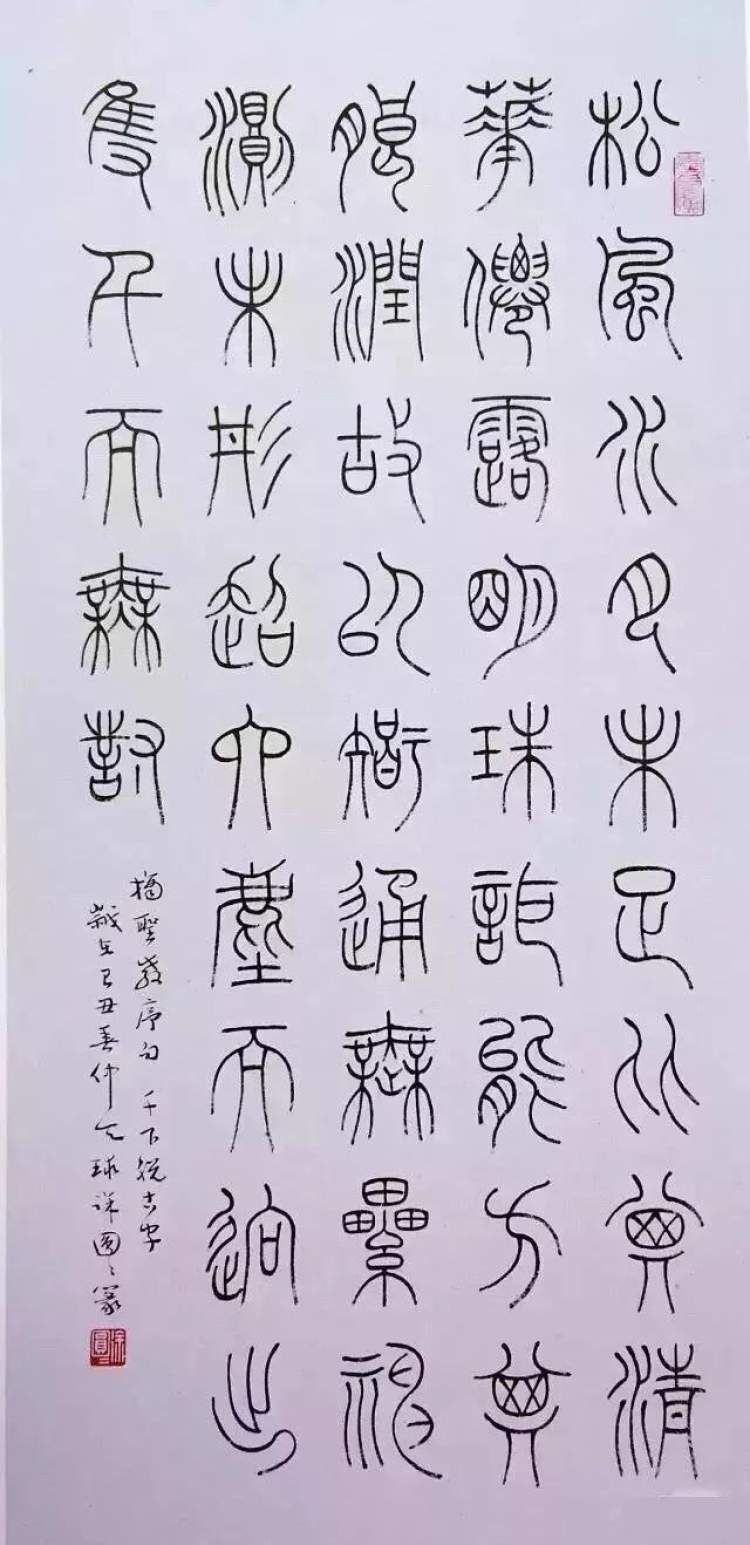 松風水月未足比其清
華僊露明珠詎能方其
朗潤故以智通無累神
測未形超六塵而迥出
隻千而無對
摘聖教序句 千下脱古字
歲己丑春仲圓篆